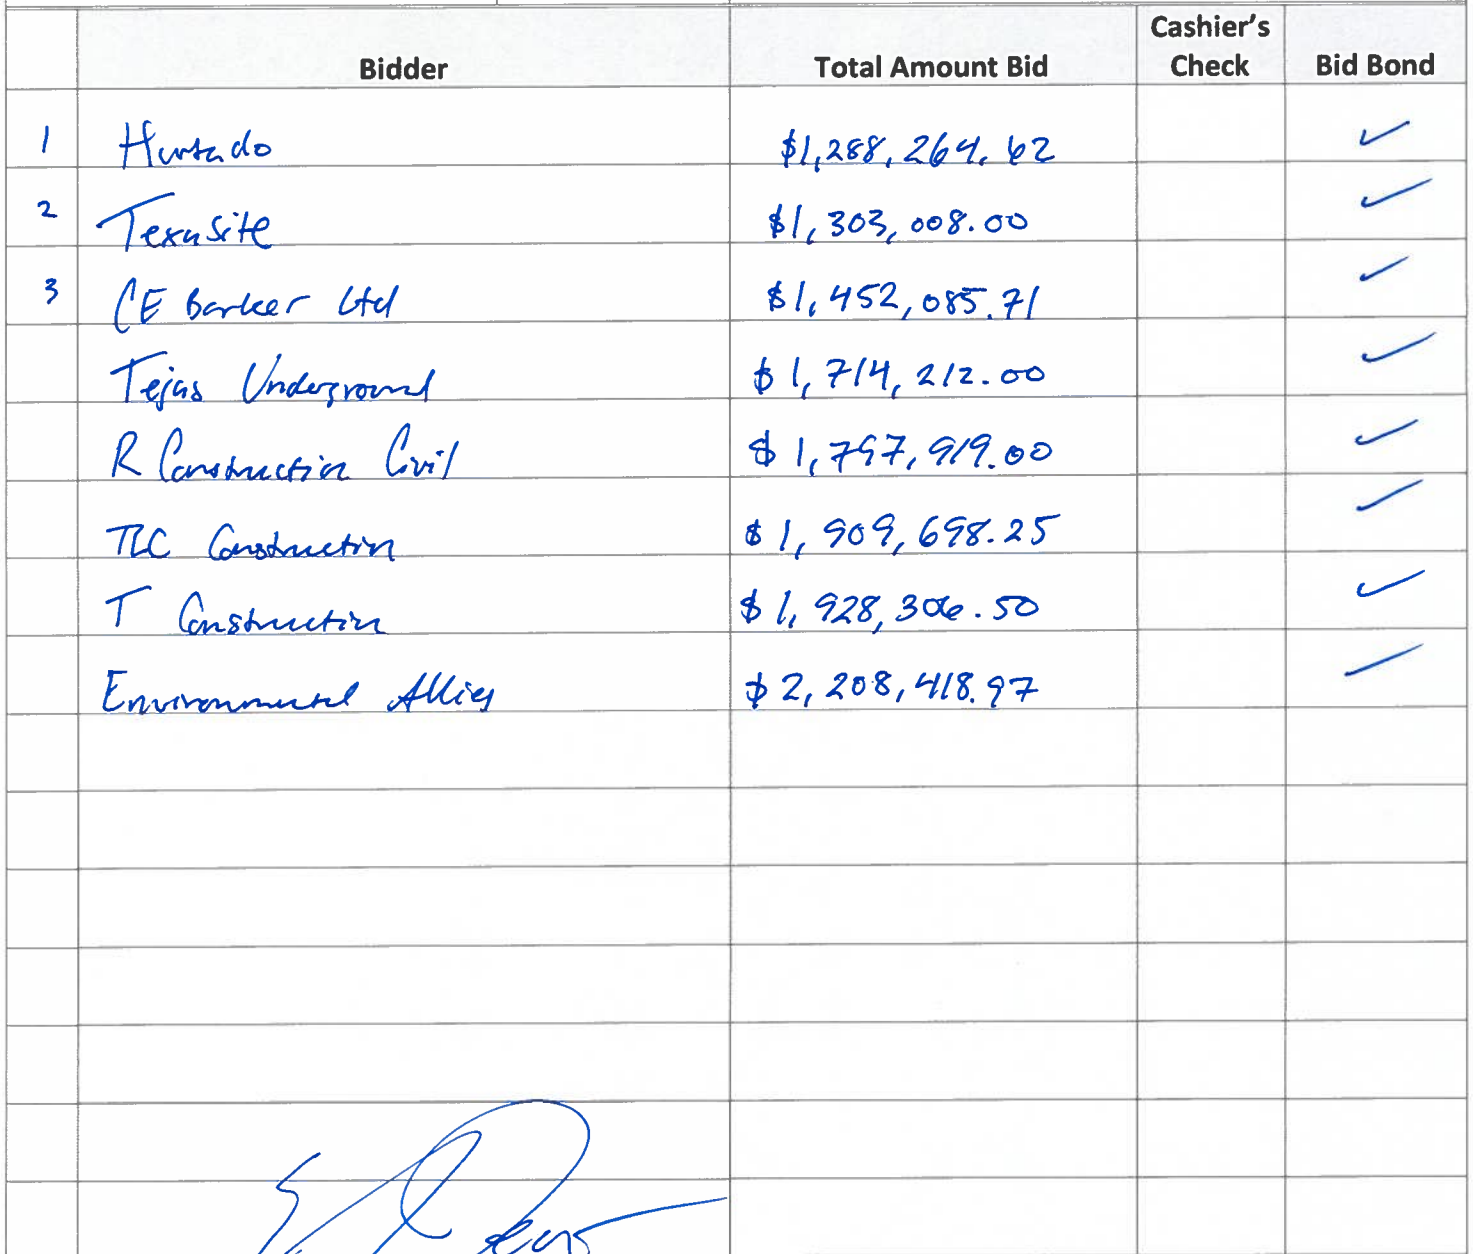 Bidder Total Amount Bid Cashier's Check Bid Bond
1 Hurtado $1,288,264.62 ✓
2 Texasite $1,303,008.00 ✓
3 CE Barker Ltd $1,452,085.71 ✓
Tejas Underground $1,714,212.00 ✓
R Construction Civil $1,797,919.00 ✓
TLC Construction $1,909,698.25 ✓
T Construction $1,928,306.50 ✓
Environmental Allies $2,208,418.97 ✓